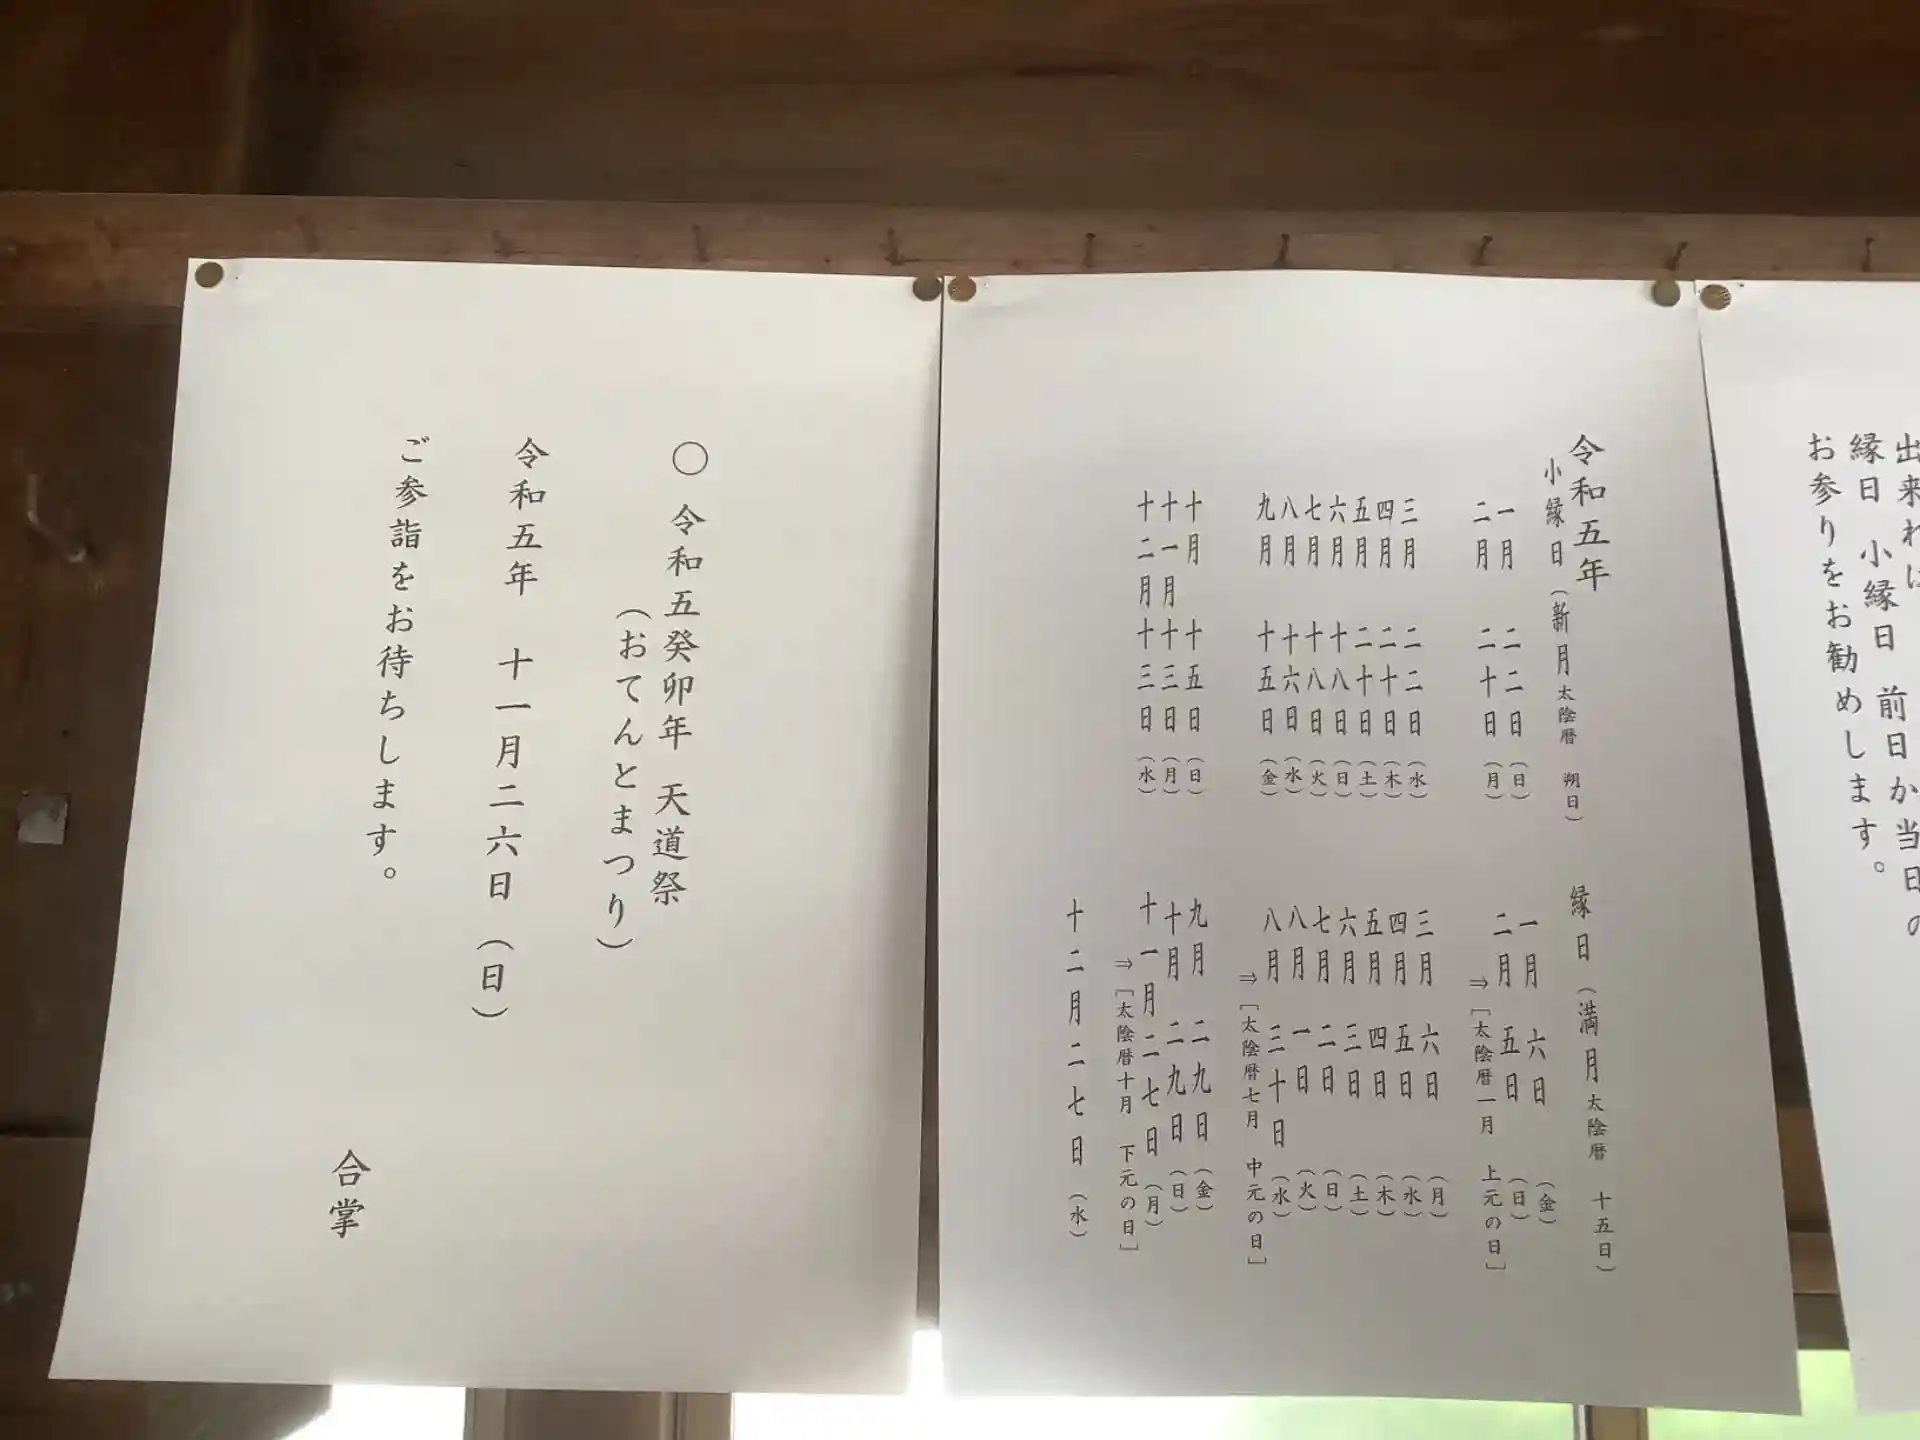 出来れば
縁日 小縁日 前日か当日の
お参りをお勧めします。
令和五年
小縁日(新月 太陰暦 朔日)
一月 二二日(日)
二月 二十日(月)
三月 二二日(水)
四月 二十日(木)
五月 二十日(土)
六月 十八日(日)
七月 十八日(火)
八月 十六日(水)
九月 十五日(金)
十月 十五日(日)
十一月 十三日(月)
十二月 十三日(水)
縁日(満月 太陰暦 十五日)
一月 六日(金)
二月 五日(日)
⇒[太陰暦一月 上元の日]
三月 六日(月)
四月 五日(水)
五月 四日(木)
六月 三日(土)
七月 二日(日)
八月 一日(火)
八月 三十日(水)
⇒[太陰暦七月 中元の日]
九月 二九日(金)
十月 二九日(日)
十一月二七日(月)
⇒[太陰暦十月 下元の日]
十二月二七日(水)
○ 令和五癸卯年 天道祭
(おてんとまつり)
令和五年 十一月二六日(日)
ご参詣をお待ちします。
合掌